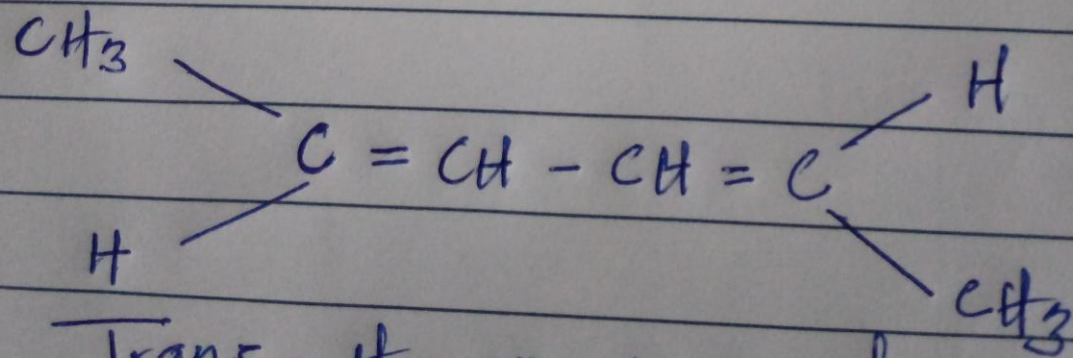 CH3 H
C = CH - CH = C
H CH3
Trans